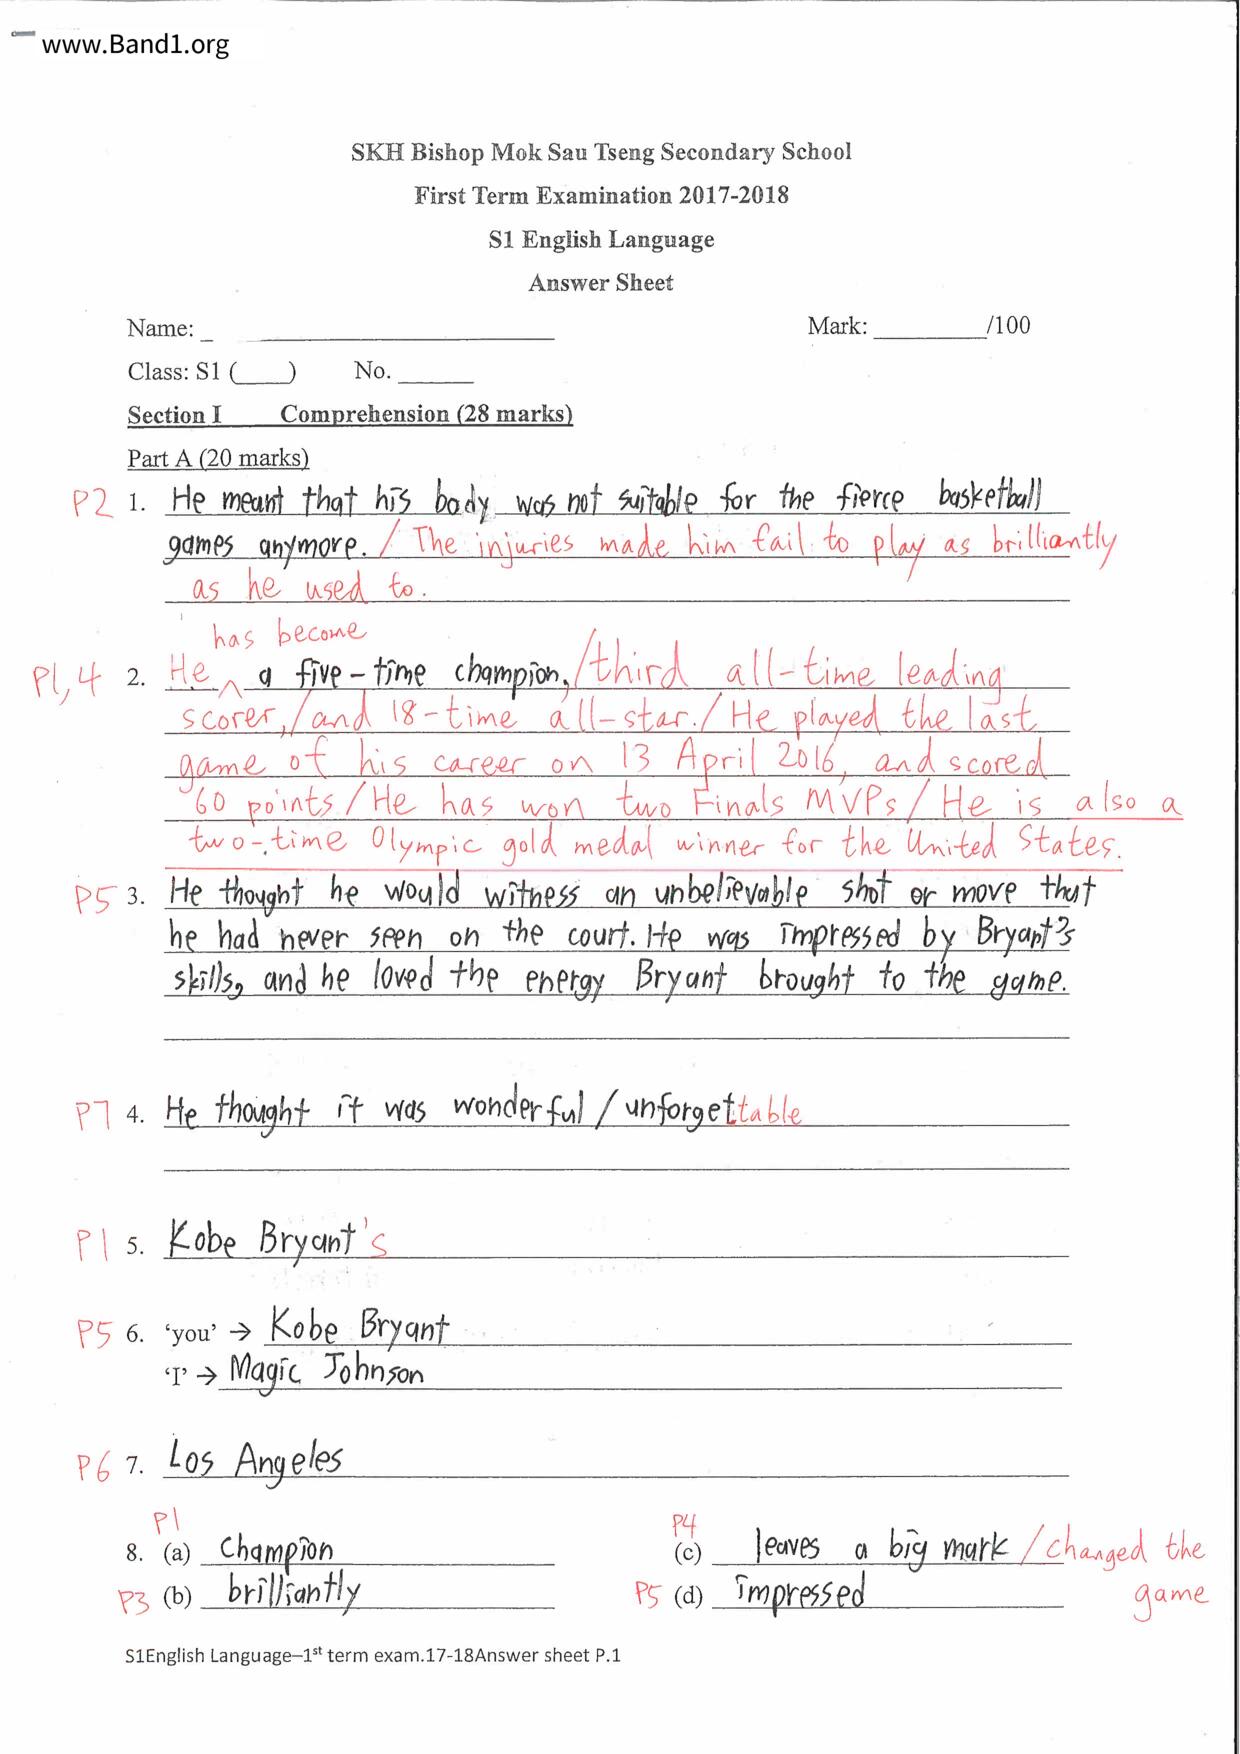 www.Band1.org
SKH Bishop Mok Sau Tseng Secondary School
First Term Examination 2017-2018
S1 English Language
Answer Sheet
Name: _ ____ Mark: ____ /100
Class: S1 (____) No. ____
Section I Comprehension (28 marks)
Part A (20 marks)
P2 1. He meant that his body was not suitable for the fierce basketball
games anymore. / The injuries made him fail to play as brilliantly
as he used to.
has become
P1,4 2. He ^ a five-time champion, /third all-time leading
scorer, /and 18-time all-star. / He played the last
game of his career on 13 April 2016, and scored
60 points / He has won two Finals MVPs / He is also a
two-time Olympic gold medal winner for the United States.
P5 3. He thought he would witness an unbelievable shot or move that
he had never seen on the court. He was impressed by Bryant's
skills, and he loved the energy Bryant brought to the game.
P7 4. He thought it was wonderful / unforgettable
P1 5. Kobe Bryant's
P5 6. 'you' → Kobe Bryant
'I' → Magic Johnson
P6 7. Los Angeles
P1 P4
8. (a) champion (c) leaves a big mark / changed the
P3 (b) brilliantly P5 (d) impressed game
S1English Language–1st term exam.17-18Answer sheet P.1